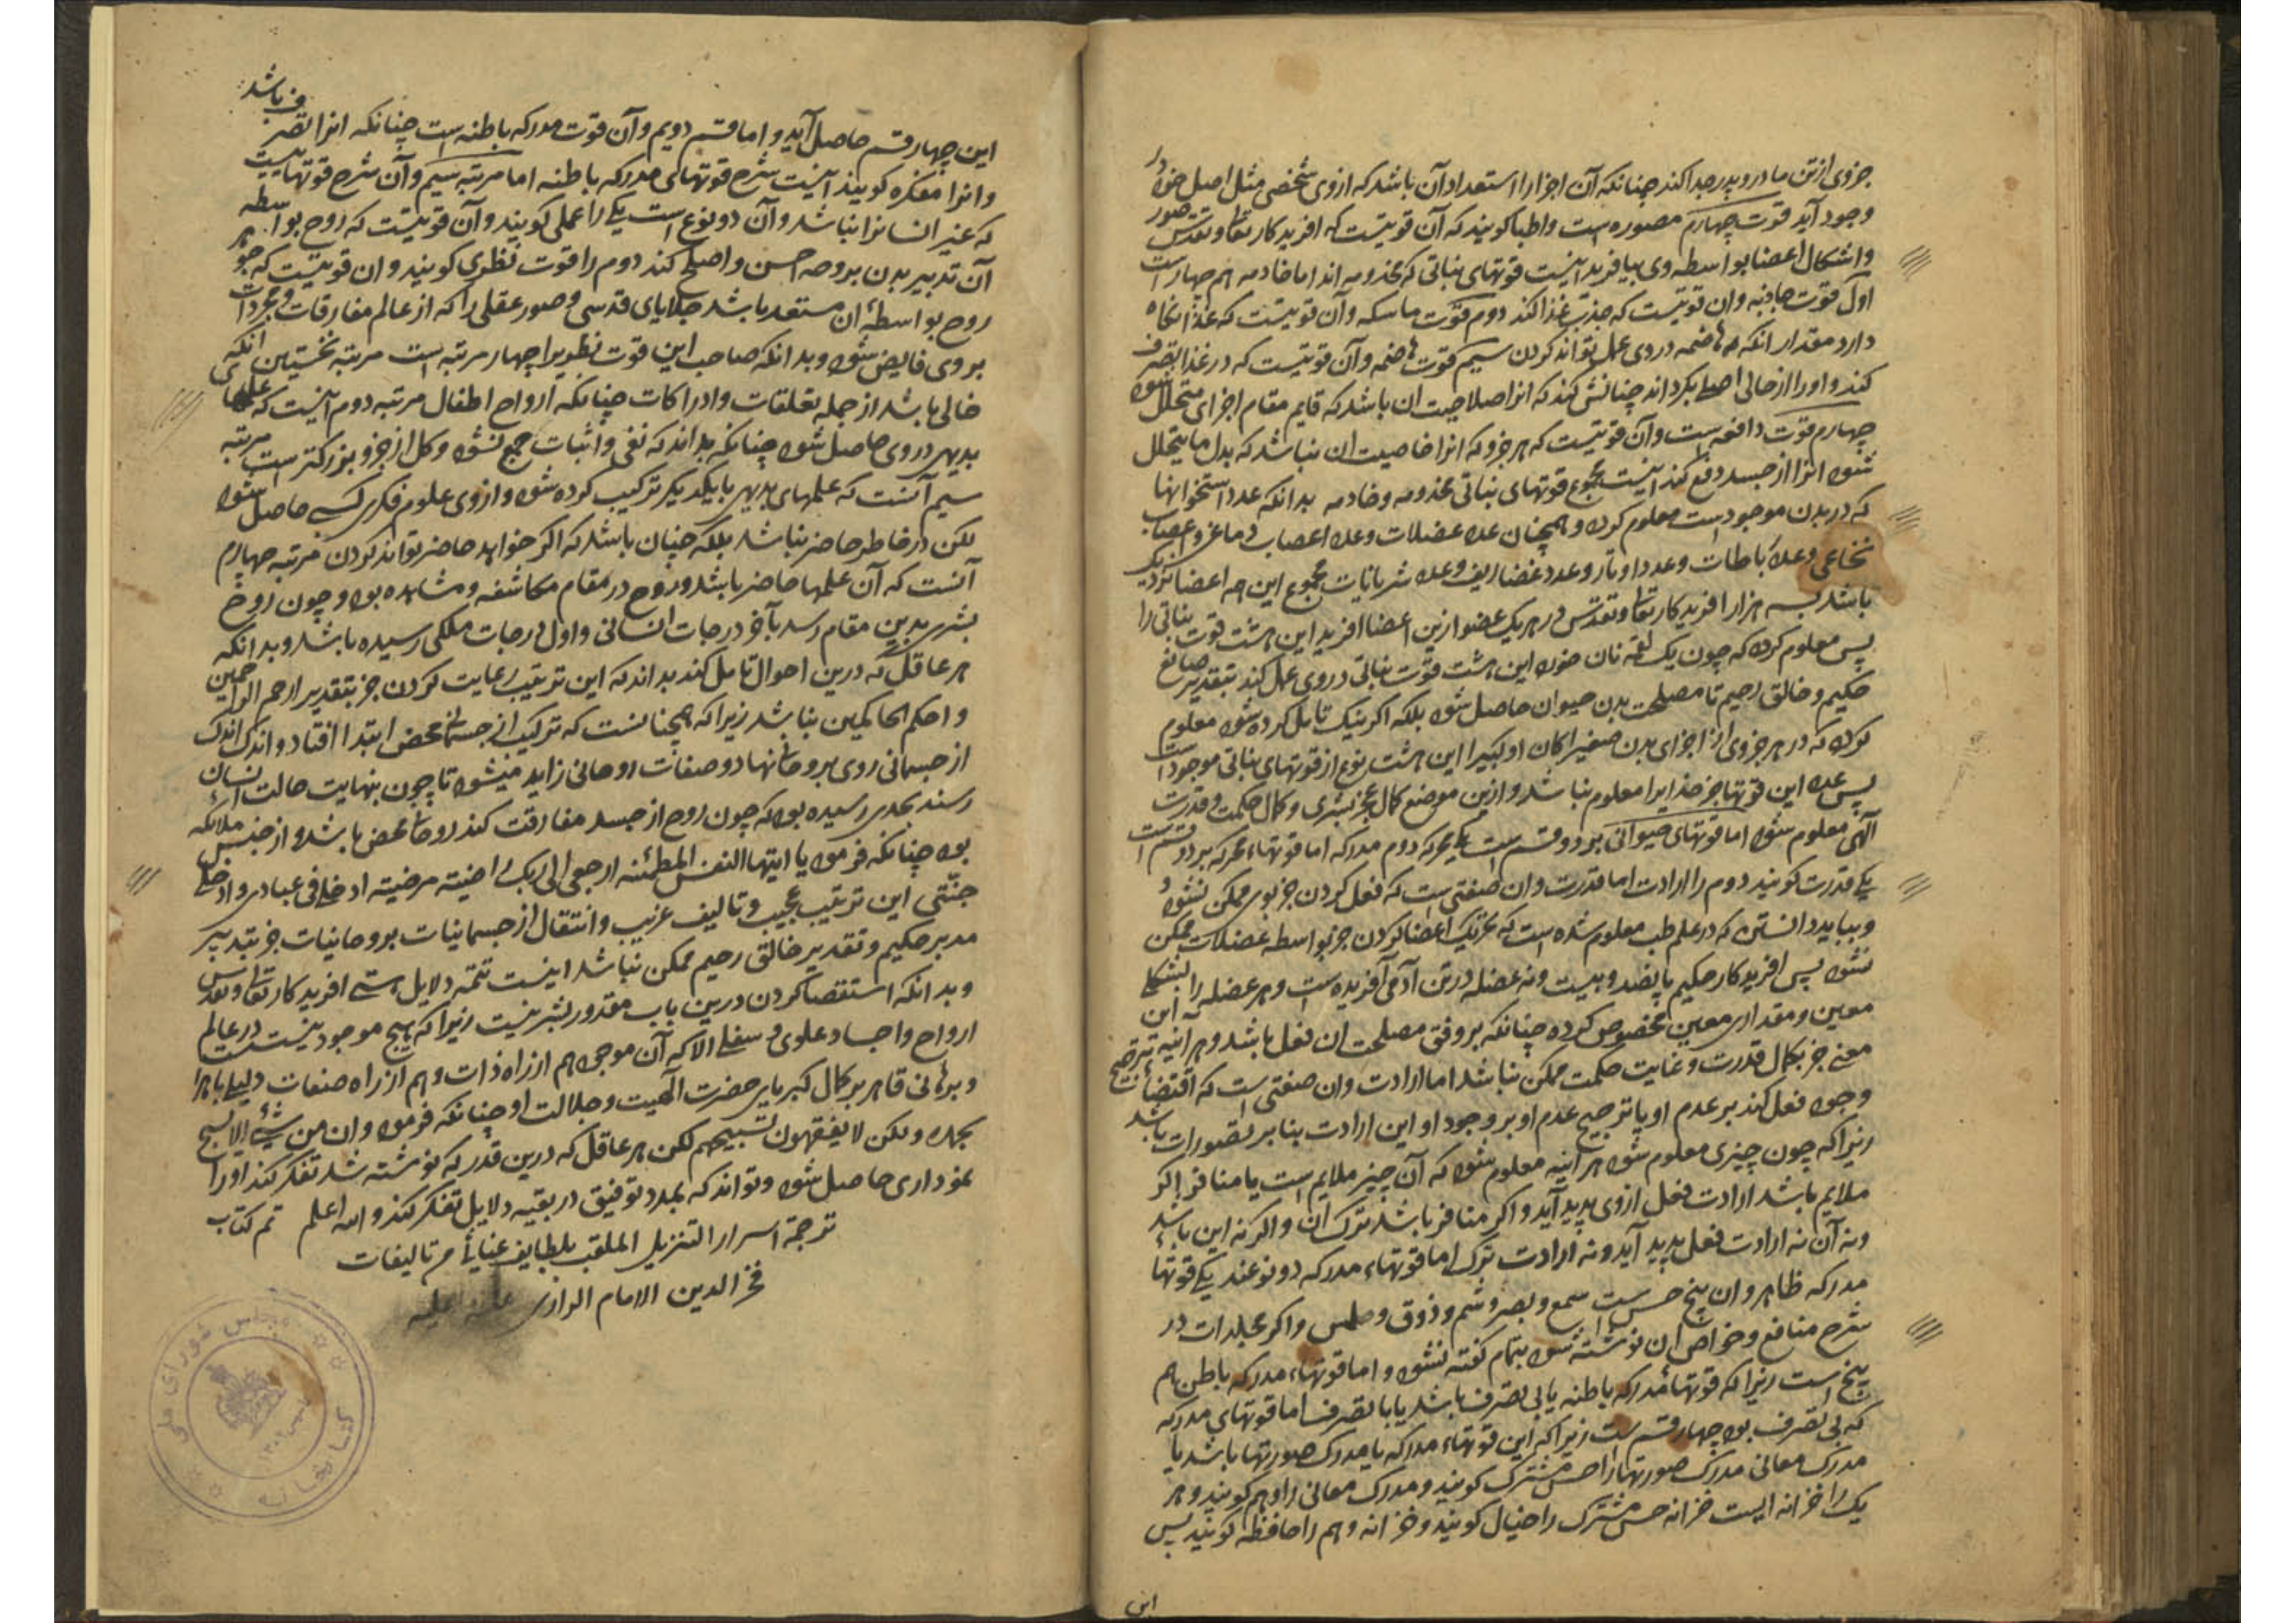 جزوی از تن مادر و پدر جدا کند چنانکه آن اجزا را استعداد آن باشد که ازوی شخصی مثل اصل خود در
وجود آید قوت چهارم مصوره است و اطبا کویند که آن قوتیست که افریدکار تعالی و تقدس صور
و اشکال اعضا بواسطه وی بیافریند اینست قوتهای نباتی که مخدومه اند اما خادمه هم چهار است
اول قوت جاذبه و ان قوتیست که جذب غذا کند دوم قوت ماسکه و آن قوتیست که غذا نکاه
دارد مقدار انکه هاضمه در وی عمل تواند کردن سیم قوت هاضمه و آن قوتیست که در غذا تصرف
کند و او را از حالی اصلی بکرداند چنانش کند که انرا صلاحیت ان باشد که قایم مقام اجزای متحلل شود
چهارم قوت دافعه است و آن قوتیست که هر جزو که انرا خاصیت ان نباشد که بدل ما یتحلل
شود انرا از جسد دفع کند اینست مجموع قوتهای نباتی مخدومه و خادمه بدانکه عدد استخوانها
که در بدن موجود است معلوم کرد و همچنان عدد عضلات و عدد اعصاب دماغی و اعصاب
نخاعی و عدد رباطات و عدد اوتار و عدد غضاریف و عدد شریانات مجموع این همه اعضا نزدیک
باشد بسه هزار افریدکار تعالی و تقدس در هر یک عضو ازین اعضا افرید این هشت قوت نباتی را
پس معلوم کرد که چون یک لقمه نان خورد این هشت قوت نباتی در وی عمل کند بتقدیر صانع
حکیم و خالق رحیم تا مصلحت بدن حیوان حاصل شود بلکه اکر نیک تامل کرده شود معلوم
کردد که در هر جزوی از اجزای بدن صغیرا کان او کبیرا این هشت نوع از قوتهای نباتی موجود است
پس عدد این قوتها جز خدایرا معلوم نباشد و ازین موضع کمال عجز بشری و کمال حکمت و قدرت
آلهی معلوم شود اما قوتهای حیوانی بر دو قسم است یکی محرکه دوم مدرکه اما قوتهاء محرکه بر دو قسم است
یکی قدرت کویند دوم را ارادت اما قدرت و ان صفتی است که فعل کردن جز بوی ممکن نشود و
و بباید دانستن که در علم طب معلوم شده است که تحریک اعضا کردن جز بواسطه عضلات ممکن
نشود پس افریدکار حکیم پانصد و بیست و نه عضله در تن آدمی آفریده است و هر عضله را بشکلی
معین و مقداری معین مخصوص کرده چنانکه بر وفق مصلحت ان فعل باشد و هر اینه که این
معنی جز بکمال قدرت و غایت حکمت ممکن نباشد اما ارادت و ان صفتی است که اقتضاء ترجیح
وجود فعل کند بر عدم او یا ترجیح عدم او بر وجود او این ارادت بنابر تصورات باشد
زیرا که چون چیزی معلوم شود هر آینه معلوم شود که آن چیز ملایم است یا منافر اکر
ملایم باشد ارادت فعل ازوی پدید آید و اکر منافر باشد ترک آن و اکر نه این باشد
و نه آن نه ارادت فعل پدید آید و نه ارادت ترک اما قوتهاء مدرکه دو نوعند یکی قوتها
مدرکه ظاهر و ان پنج حس است سمع و بصر و شم و ذوق و لمس و اکر مجلدات در
شرح منافع و خواص ان نوشته شود بتمام کفته نشود و اما قوتهاء مدرکه باطن هم
پنج است زیرا که قوتهاء مدرکه باطنه یا بی تصرف باشد یا با تصرف اما قوتهای مدرکه
که بی تصرف بود چهار قسم است زیرا که این قوتهاء مدرکه یا مدرک صورتها باشد یا
مدرک معانی مدرک صورتها را حس مشترک کویند و مدرک معانی را وهم کویند و هر
یک را خزانه ایست خزانه حس مشترک را خیال کویند و خزانه وهم را حافظه کویند پس
این
این چهار قسم حاصل آید و اما قسم دویم و آن قوت مدرکه باطنه است چنانکه انرا تصرف باشد
و انرا مفکره کویند اینست شرح قوتهای مدرکه باطنه اما مرتبه سیم و آن شرح قوتهاییست
که غیر انسانرا نباشد و آن دو نوع است یکی را عملی کویند و آن قوتیست که روح بواسطه
آن تدبیر بدن بر وجه احسن و اصلح کند دوم را قوت نظری کویند و ان قوتیست که جوهر
روح بواسطۀ ان مستعد باشد جلایای قدسی و صور عقلی را که از عالم مفارقات و مجردات
بروی فایض شود و بدانکه صاحب این قوت نظریرا چهار مرتبه است مرتبه نخستین انکه
خالی باشد از جمله تعلقات و ادراکات چنانکه ارواح اطفال مرتبه دوم آنست که علمهای
بدیهی در وی حاصل شود چنانکه بداند که نفی و اثبات جمع نشود و کل از جزو بزرکتر است مرتبه
سیم آنست که علمهای بدیهی با یکدیکر ترکیب کرده شود و ازوی علوم فکری کسبی حاصل شود
لکن در خاطر حاضر نباشد بلکه چنان باشد که اکر خواهد حاضر تواند کردن مرتبه چهارم
آنست که آن علمها حاضر باشد و روح در مقام مکاشفه و مشاهده بود و چون روح
بشری بدین مقام رسد بآخر درجات انسانی و اول درجات ملکی رسیده باشد و بدانکه
هر عاقل که درین احوال تامل کند بداند که این ترتیب رعایت کردن جز بتقدیر ارحم الراحمین
و احکم الحاکمین نباشد زیرا که همچنانست که ترکیب از جسمانی محض ابتدا افتاد و اندک اندک
از جسمانی روی بروحانی نهاد و صفات روحانی زاید میشود تا چون بنهایت حالت انسان
رسند بحدی رسیده بود که چون روح از جسد مفارقت کند روحانی محض باشد و از جنس ملائکه
بود چنانکه فرمود یا ایتها النفس المطمئنه ارجعی الی ربک راضیه مرضیه ادخلی فی عبادی و ادخلی
جنتی این ترتیب عجیب و تالیف غریب و انتقال از جسمانیات بروحانیات جز بتدبیر
مدبر حکیم و تقدیر خالق رحیم ممکن نباشد اینست تتمه دلایل هستی افریدکار تعالی و تقدس
و بدانکه استقصا کردن درین باب مقدور بشر نیست زیرا که هیچ موجود نیست در عالم
ارواح و اجساد علوی و سفلی الا که آن موجود هم از راه ذات و هم از راه صفات دلیلی باهر
و برهانی قاهر بر کمال کبریای حضرت آلهیت و جلالت او چنانکه فرمود و ان من شیء الا یسبح
بحمده ولکن لا یفقهون تسبیحهم لکن هر عاقل که درین قدر که نوشته شد تفکر کند او را
نموداری حاصل شود و تواند که بمدد توفیق در بقیه دلایل تفکر کند و الله اعلم تم کتاب
ترجمة اسرار التنزیل الملقب بلطایف غیاثی من تالیفات
فخر الدین الامام الرازی علیه
کتابخانه مجلس شورای ملی